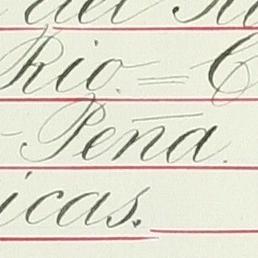 del
Rio. = C
-Peña.
icas.